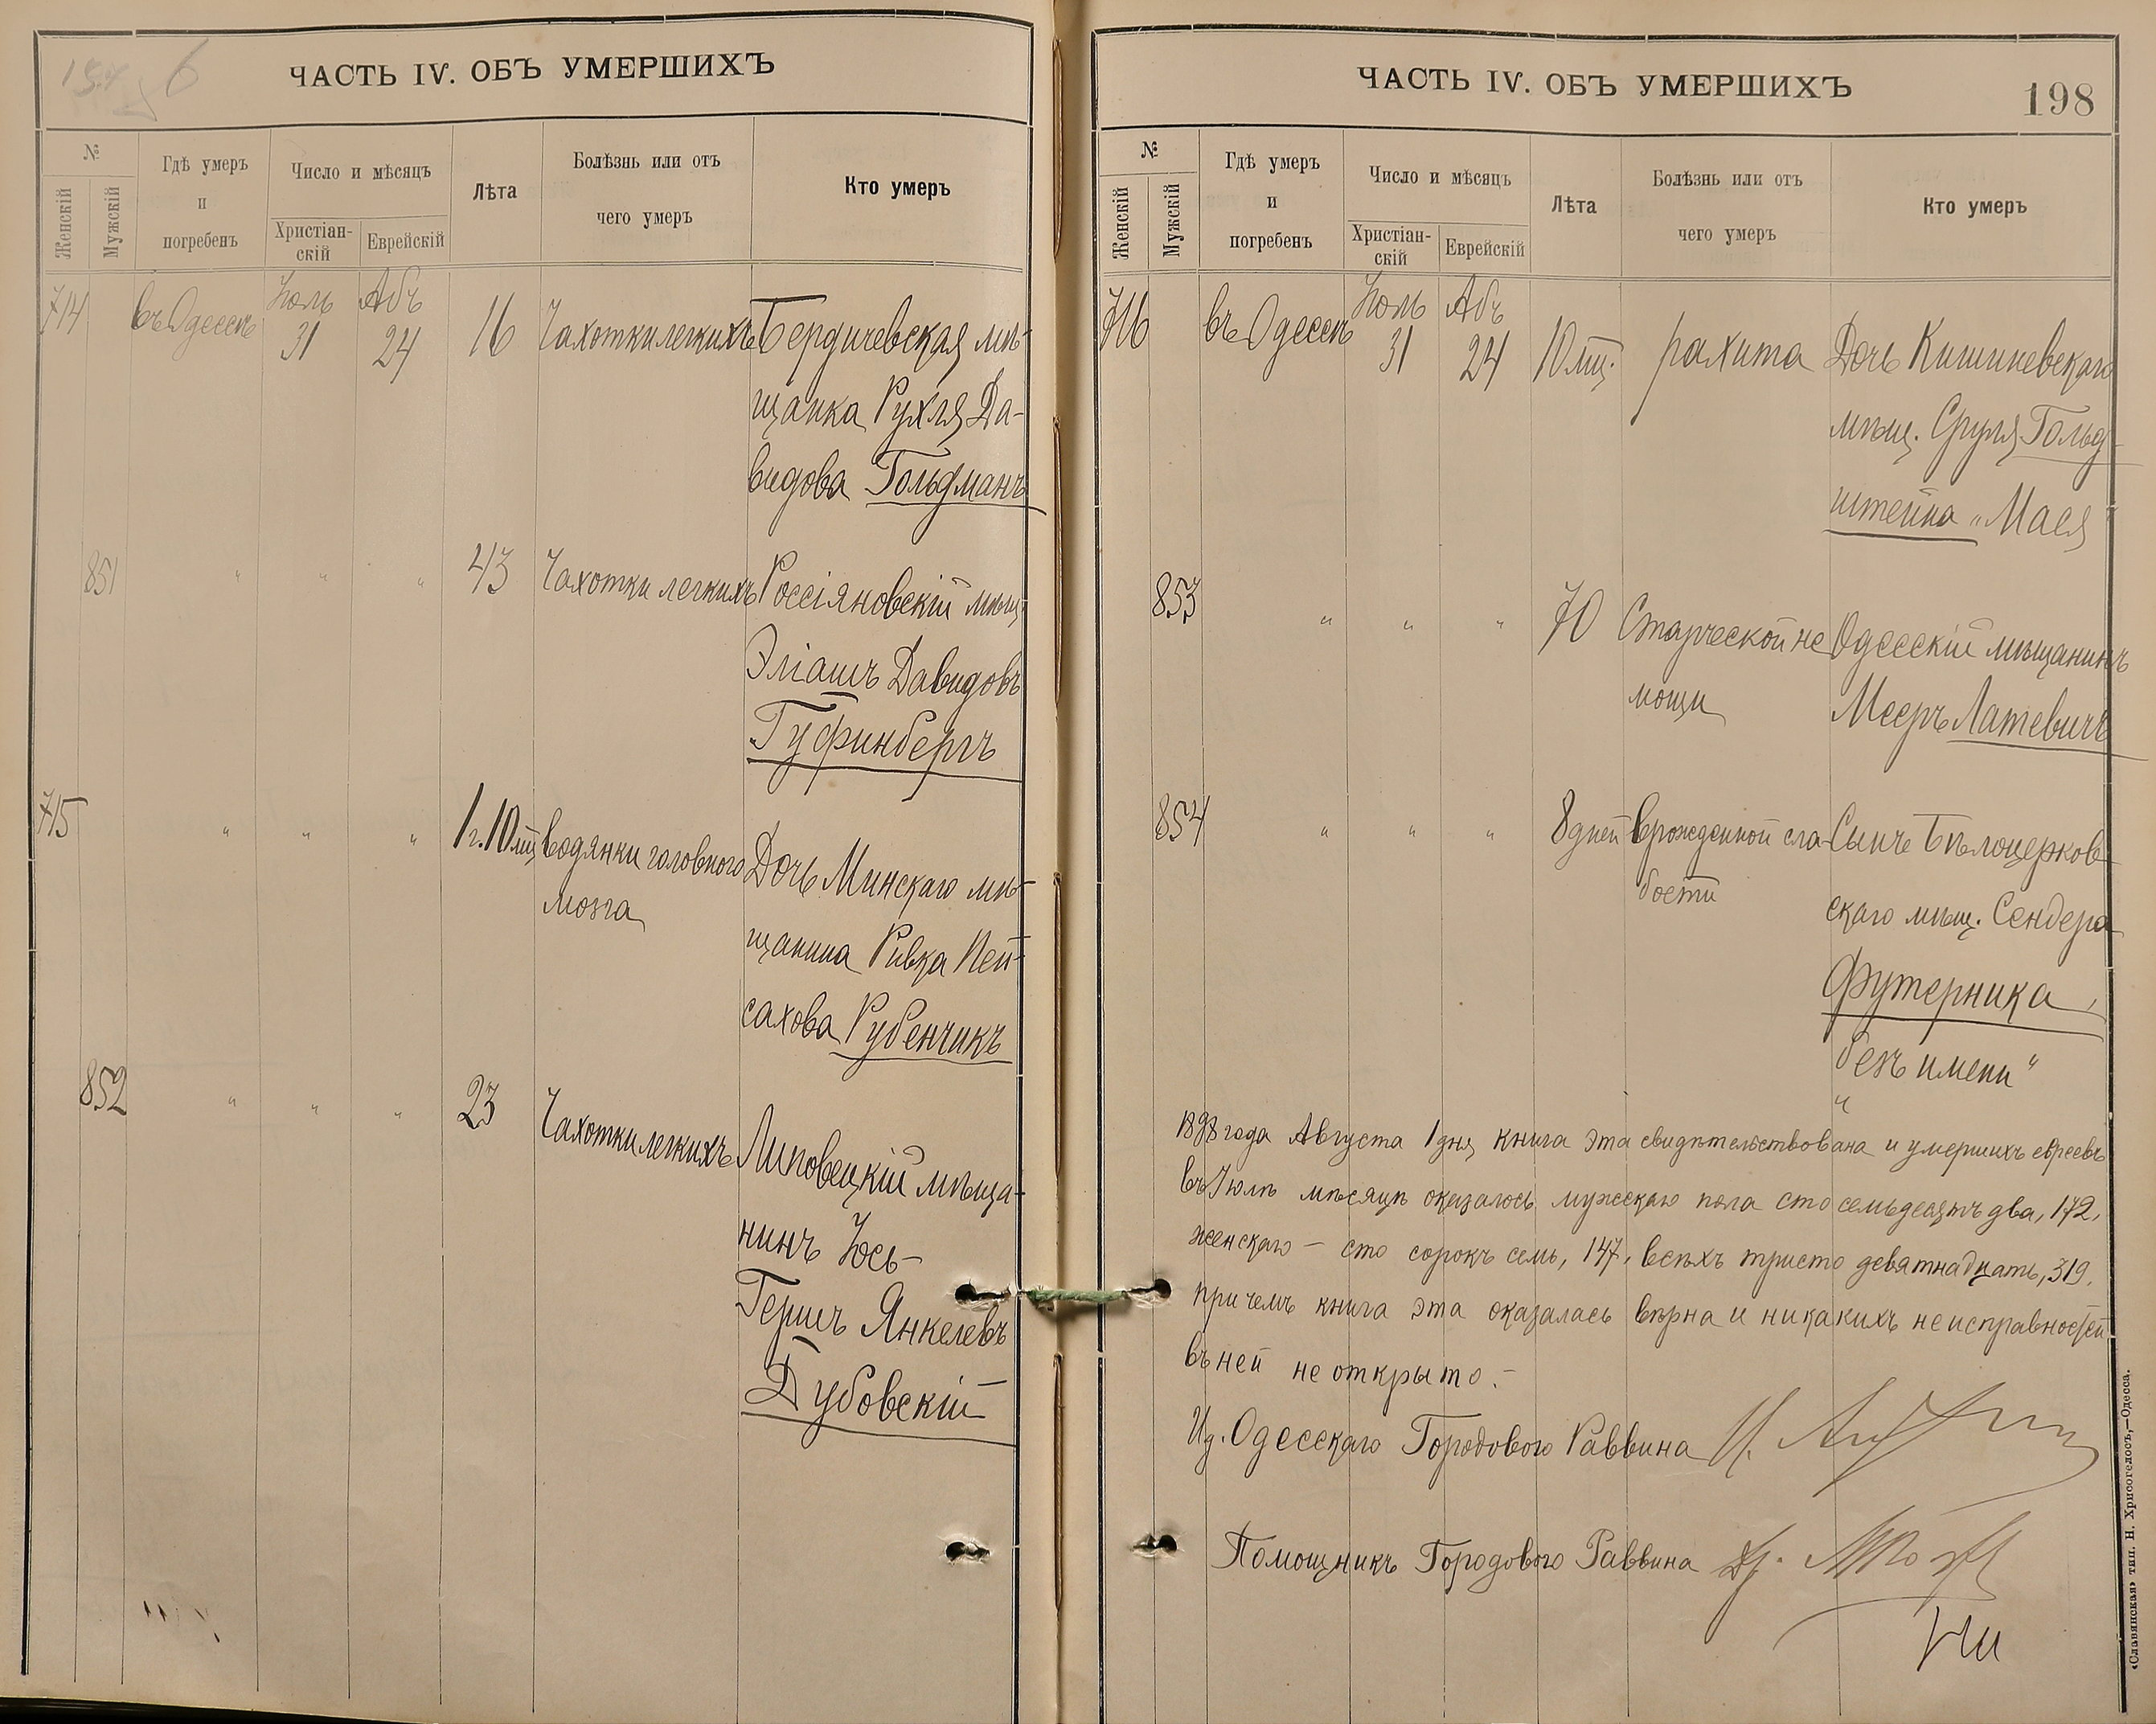 ЧАСТЬ IV. ОБЪ УМЕРШИХЪ
№
Женскій
Мужскій
Гдѣ умеръ
и
погребенъ
Число и мѣсяцъ
Христіан-
скій
Еврейскій
Лѣта
Болѣзнь или отъ
чего умеръ
Кто умеръ
714 въ Одессѣ Іюль 31 Абъ 24 16 Чахотки легкихъ Бердичевская мѣ-
щанка Рухля Да-
видова Гольдманъ
851 " " " 43 Чахотки легкихъ Россіяновскій мѣщ.
Эліашъ Давидовъ
Гуфинбергъ
715 " " " 1 г. 10 мц водянки головного Дочь Минскаго мѣ-
мозга
щанина Ривка Пей-
сахова Рубенчикъ
852 " " " 23 Чахотки легкихъ Липовецкій мѣща-
нинъ Іось-
Гершъ Янкелевъ
Дубовскій
ЧАСТЬ IV. ОБЪ УМЕРШИХЪ
198
№
Женскій
Мужскій
Гдѣ умеръ
и
погребенъ
Число и мѣсяцъ
Христіан-
скій
Еврейскій
Лѣта
Болѣзнь или отъ
чего умеръ
Кто умеръ
716 въ Одессѣ Іюль 31 Абъ 24 10 мц. рахита Дочь Кишиневскаго
мѣщ. Сруля Гольд-
штейна „Мася
853 " " " 70 Старческой не Одесскій мѣщанинъ
мощи
Мееръ Латевичъ
854 " " " 8 дней врожденной сла- Сынъ Бѣлоцерков-
бости
скаго мѣщ. Сендера
Футерника,
безъ имени"
1898 года Августа 1 дня книга эта свидѣтельствована и умершихъ евреевъ
въ Іюлѣ мѣсяцѣ оказалось мужскаго пола сто семьдесятъ два, 172,
женскаго — сто сорокъ семь, 147, всѣхъ триста девятнадцать, 319.
при чемъ книга эта оказалась вѣрна и никакихъ неисправностей
въ ней не открыто.-
Ид. Одесскаго Городового Раввина
Помощникъ Городового Раввина
«Славянская» тип. Н. Хрисогелосъ,—Одесса.